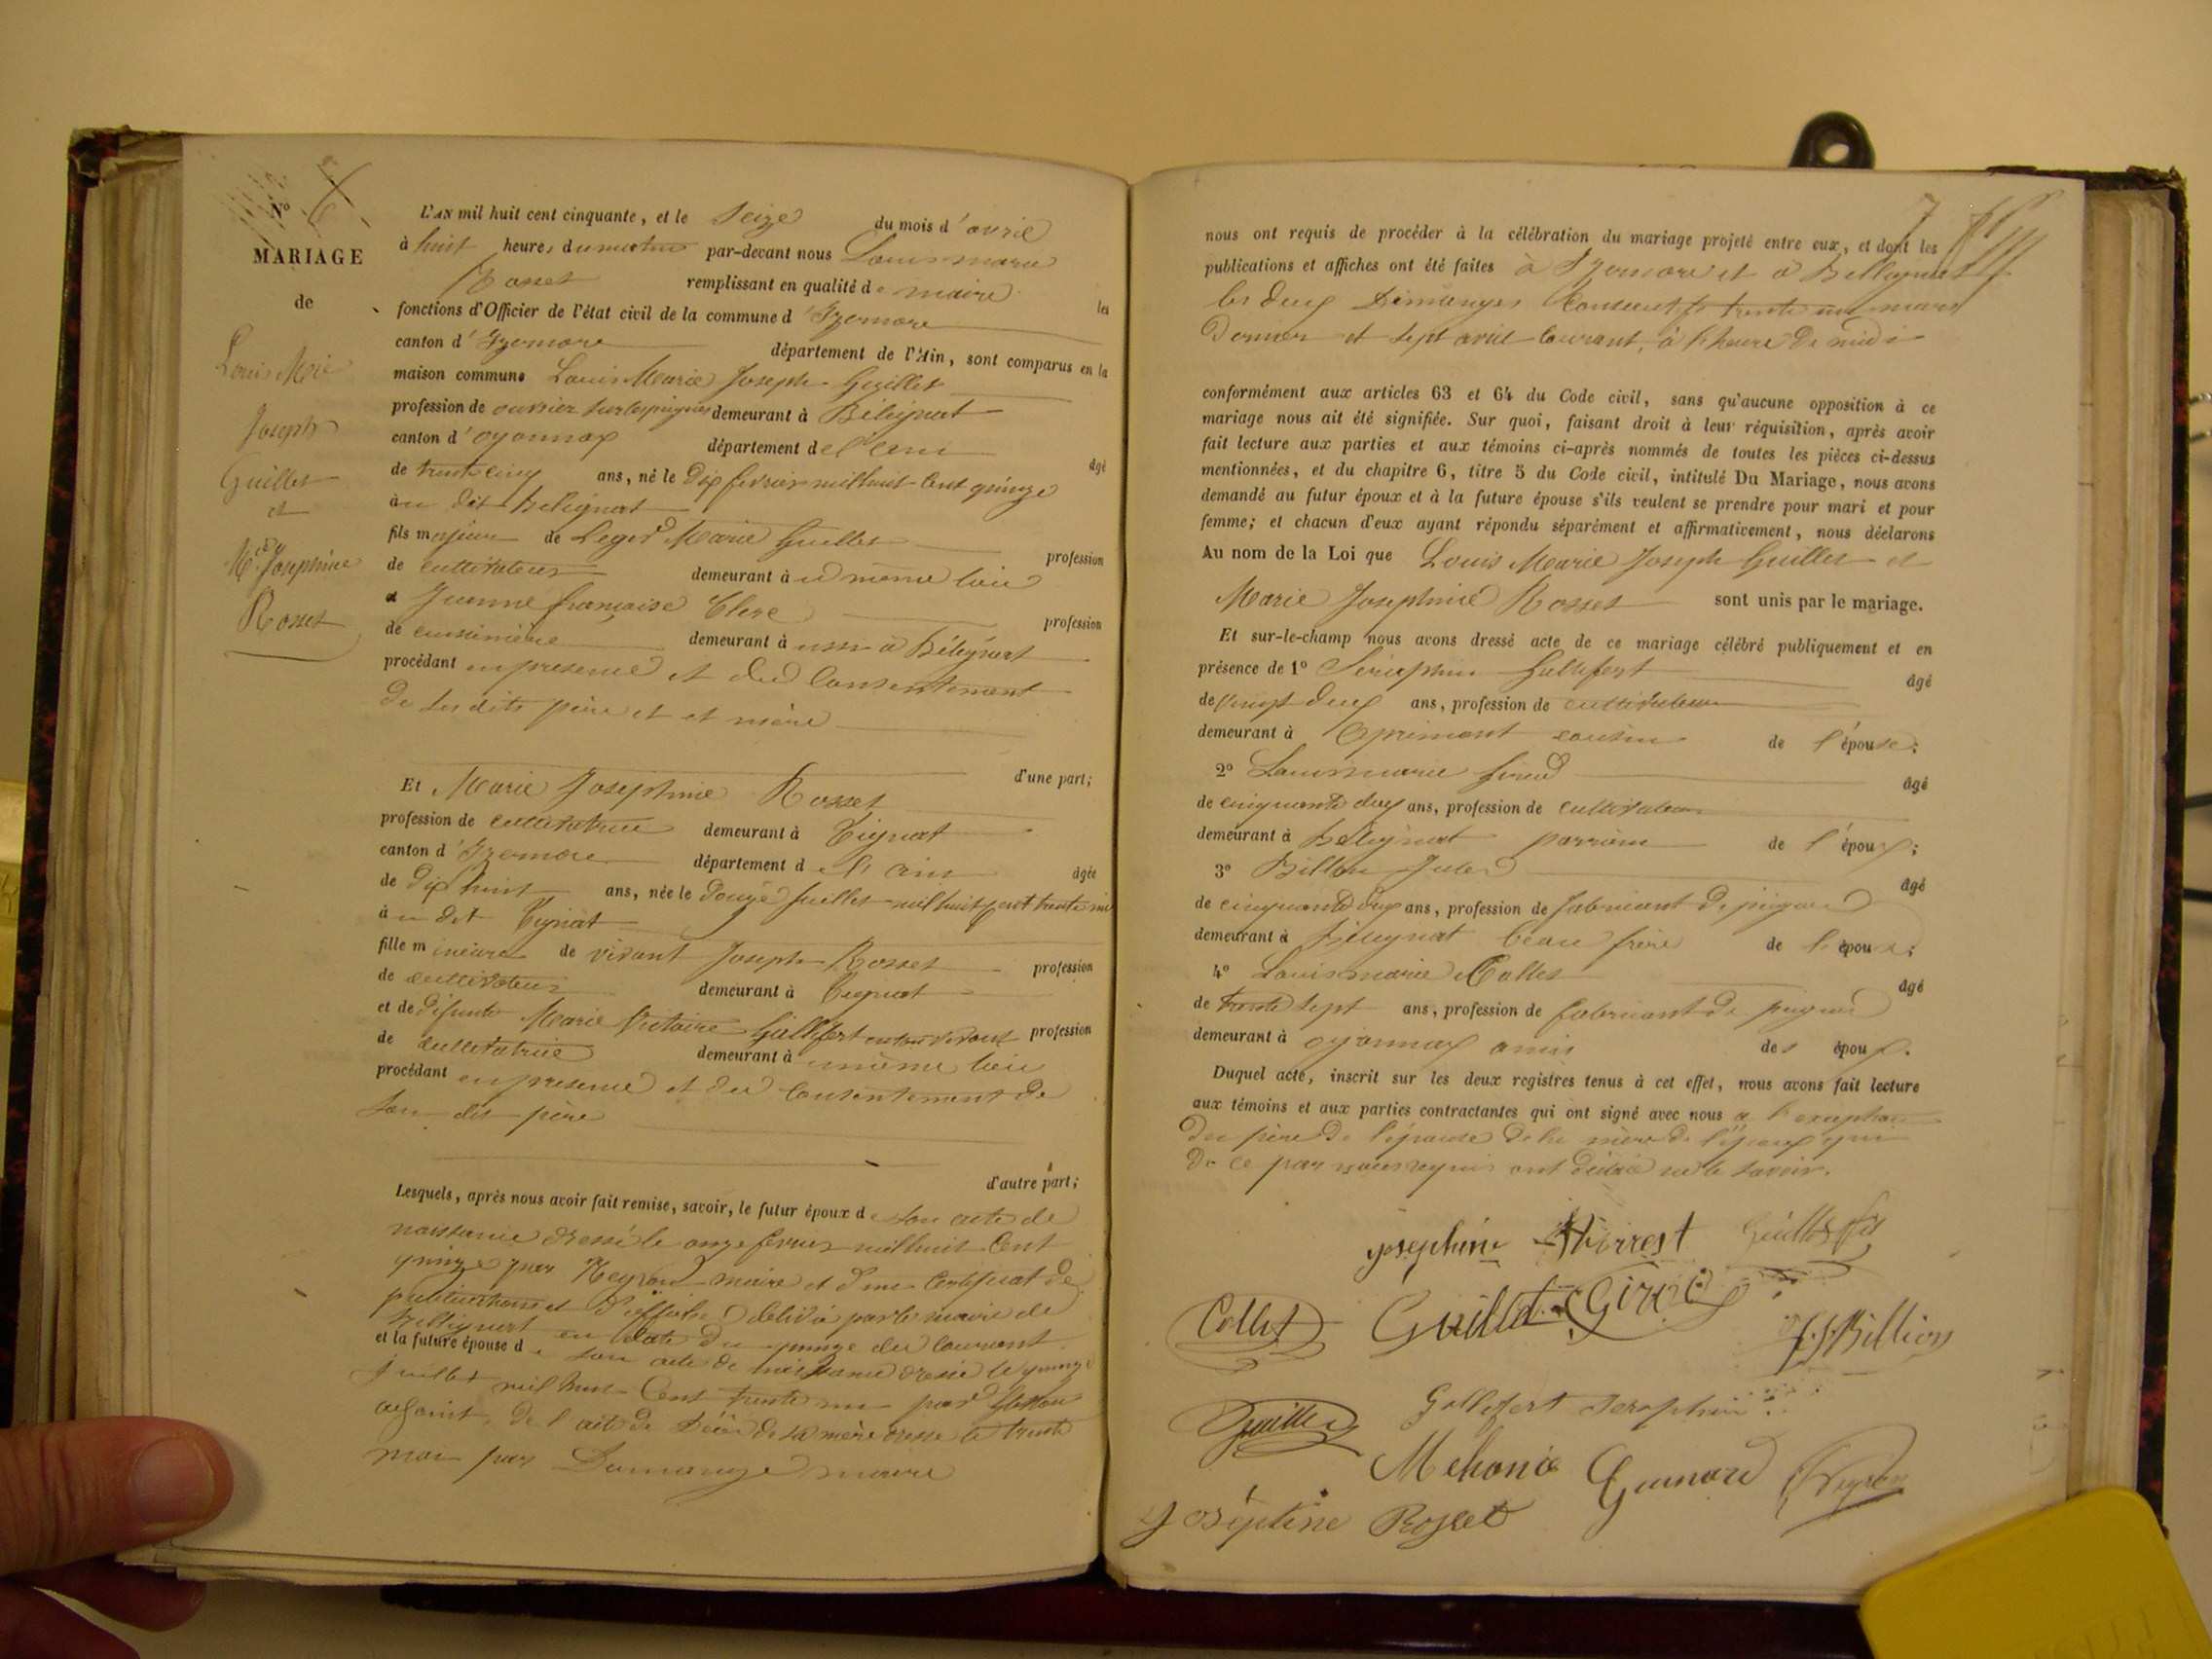 N° 6
MARIAGE
de
Louis Mie
Joseph
Guillet
et
Mie Josephine
Rosset
L'AN mil huit cent cinquante, et le Seize du mois d'avril
à huit heures du matin par-devant nous Louis marie
Rosset remplissant en qualité de maire les
fonctions d'Officier de l'état civil de la commune d'Izernore
canton d'Izernore département de l'Ain, sont comparus en la
maison commune Louis Marie Joseph Guillet
profession de ouvrier sur les peignes demeurant à Bélignat
canton d'oyonnax département de l'ain âgé
de trente cinq ans, né le Dix fevrier mil huit Cent quinze
à u dit Belignat
fils majeur de Leger Marie Guillet profession
de cultivateur demeurant à u même lieu
et Jeanne francoise Clerc profession
de cuisinière demeurant à ussi à Bélignat
procédant en presence et du Consentement
de ses dits père et et mère
d'une part;
Et Marie Josephine Rosset
profession de cultivatrice demeurant à Tignat
canton d'Izernore département de l'ain âgée
de Dix huit ans, née le Douze Juillet mil huit Cent trente un
à u dit Tignat
fille mineure de vivant Joseph Rosset profession
de cultivateur demeurant à Tignat
et de Défunte Marie Victoire Gallifert en son vivant profession
de cultivatrice demeurant à u même lieu
procédant en presence et du Consentement de
son dit père
d'autre part;
Lesquels, après nous avoir fait remise, savoir, le futur époux de son acte de
naissance dressé le onze fevrier mil huit Cent
quinze par Neyron maire et d'un Certificat de
publications et d'affiches délivré par le maire de
Bellignat en date du quinze du Courant
et la future épouse de son acte de naissance dressé le quinze
Juillet mil huit Cent trente un par
adjoint, de l'acte de Décès de sa mère dressé le trente
mai par Domange maire
7
nous ont requis de procéder à la célébration du mariage projeté entre eux, et dont les
publications et affiches ont été faites à Izernore et à Bellignat
les deux Dimanges trente un mars
Dernier et sept avril Courant, à l'heure de midi
conformément aux articles 63 et 64 du Code civil, sans qu'aucune opposition à ce
mariage nous ait été signifiée. Sur quoi, faisant droit à leur réquisition, après avoir
fait lecture aux parties et aux témoins ci-après nommés de toutes les pièces ci-dessus
mentionnées, et du chapitre 6, titre 5 du Code civil, intitulé Du Mariage, nous avons
demandé au futur époux et à la future épouse s'ils veulent se prendre pour mari et pour
femme; et chacun d'eux ayant répondu séparément et affirmativement, nous déclarons
Au nom de la Loi que Louis Marie Joseph Guillet et
Marie Josephine Rosset sont unis par le mariage.
Et sur-le-champ nous avons dressé acte de ce mariage célébré publiquement et en
présence de 1° Seraphin Gallifert âgé
de vingt deux ans, profession de cultivateur
demeurant à Apremont cousin de l'épouse;
2° Louis marie Girod âgé
de cinquante deux ans, profession de cultivateur
demeurant à Bélignat parrain de l'époux;
3° Billion Jules âgé
de cinquante deux ans, profession de fabriicant de peignes
demeurant à Béleignat beau frère de l'époux;
4° Louis marie Collet âgé
de trente sept ans, profession de fabricant de peignes
demeurant à oyonnax amis des époux.
Duquel acte, inscrit sur les deux registres tenus à cet effet, nous avons fait lecture
aux témoins et aux parties contractantes qui ont signé avec nous à l'exception
du père de l'épouse de la mère de l'époux qui
de ce par nous requis ont déclaré ne le savoir.
josephine Guillet fils
Collet Guillet Girod J J Billion
Guillet Gallifert Seraphin
Melanie Guinard Neyron
Joséphine Rosset